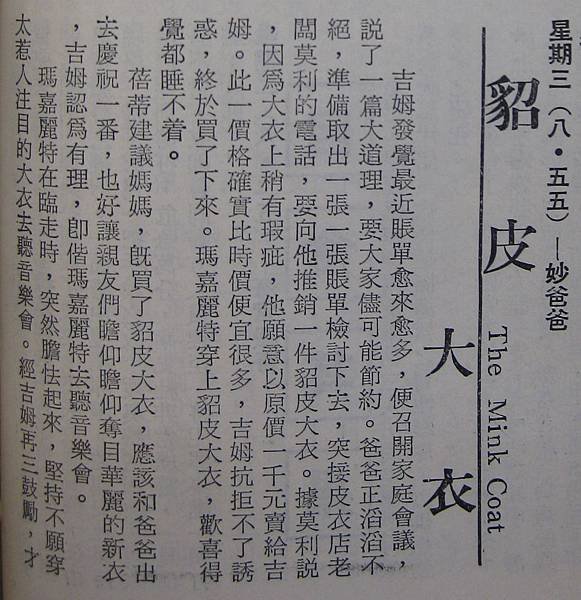 星期三（八・五五）—妙爸爸
貂皮大衣
The Mink Coat
吉姆發覺最近賬單愈來愈多，便召開家庭會議，
說了一篇大道理，要大家儘可能節約。爸爸正滔滔不
絕，準備取出一張一張賬單檢討下去，突接皮衣店老
闆莫利的電話，要向他推銷一件貂皮大衣。據莫利說
，因爲大衣上稍有瑕疵，他願意以原價一千元賣給吉
姆。此一價格確實比時價便宜很多，吉姆抗拒不了誘
惑，終於買了下來。瑪嘉麗特穿上貂皮大衣，歡喜得
覺都睡不着。
蓓蒂建議媽媽，旣買了貂皮大衣，應該和爸爸出
去慶祝一番，也好讓親友們瞻仰瞻仰奪目華麗的新衣
，吉姆認爲有理，卽偕瑪嘉麗特去聽音樂會。
瑪嘉麗特在臨走時，突然膽怯起來，堅持不願穿
太惹人注目的大衣去聽音樂會。經吉姆再三鼓勵，才